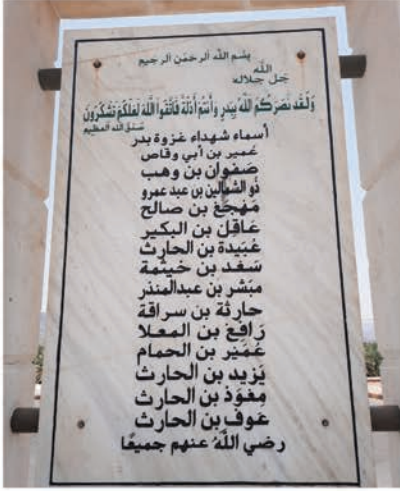 بِسْمِ اللهِ الرَّحْمٰنِ الرَّحِيمِ
الله
جل جلاله
وَلَقَدْ نَصَرَكُمُ اللَّهُ بِبَدْرٍ وَأَنتُمْ أَذِلَّةٌ فَاتَّقُوا اللَّهَ لَعَلَّكُمْ تَشْكُرُونَ
صدق الله العظيم
أسماء شهداء غزوة بدر
عمير بن أبي وقاص
صفوان بن وهب
ذو الشمالين بن عبد عمرو
مهجع بن صالح
عاقل بن البكير
عبيدة بن الحارث
سعد بن خيثمة
مبشر بن عبدالمنذر
حارثة بن سراقة
رافع بن المعلا
عمير بن الحمام
يزيد بن الحارث
معوذ بن الحارث
عوف بن الحارث
رضي الله عنهم جميعًا